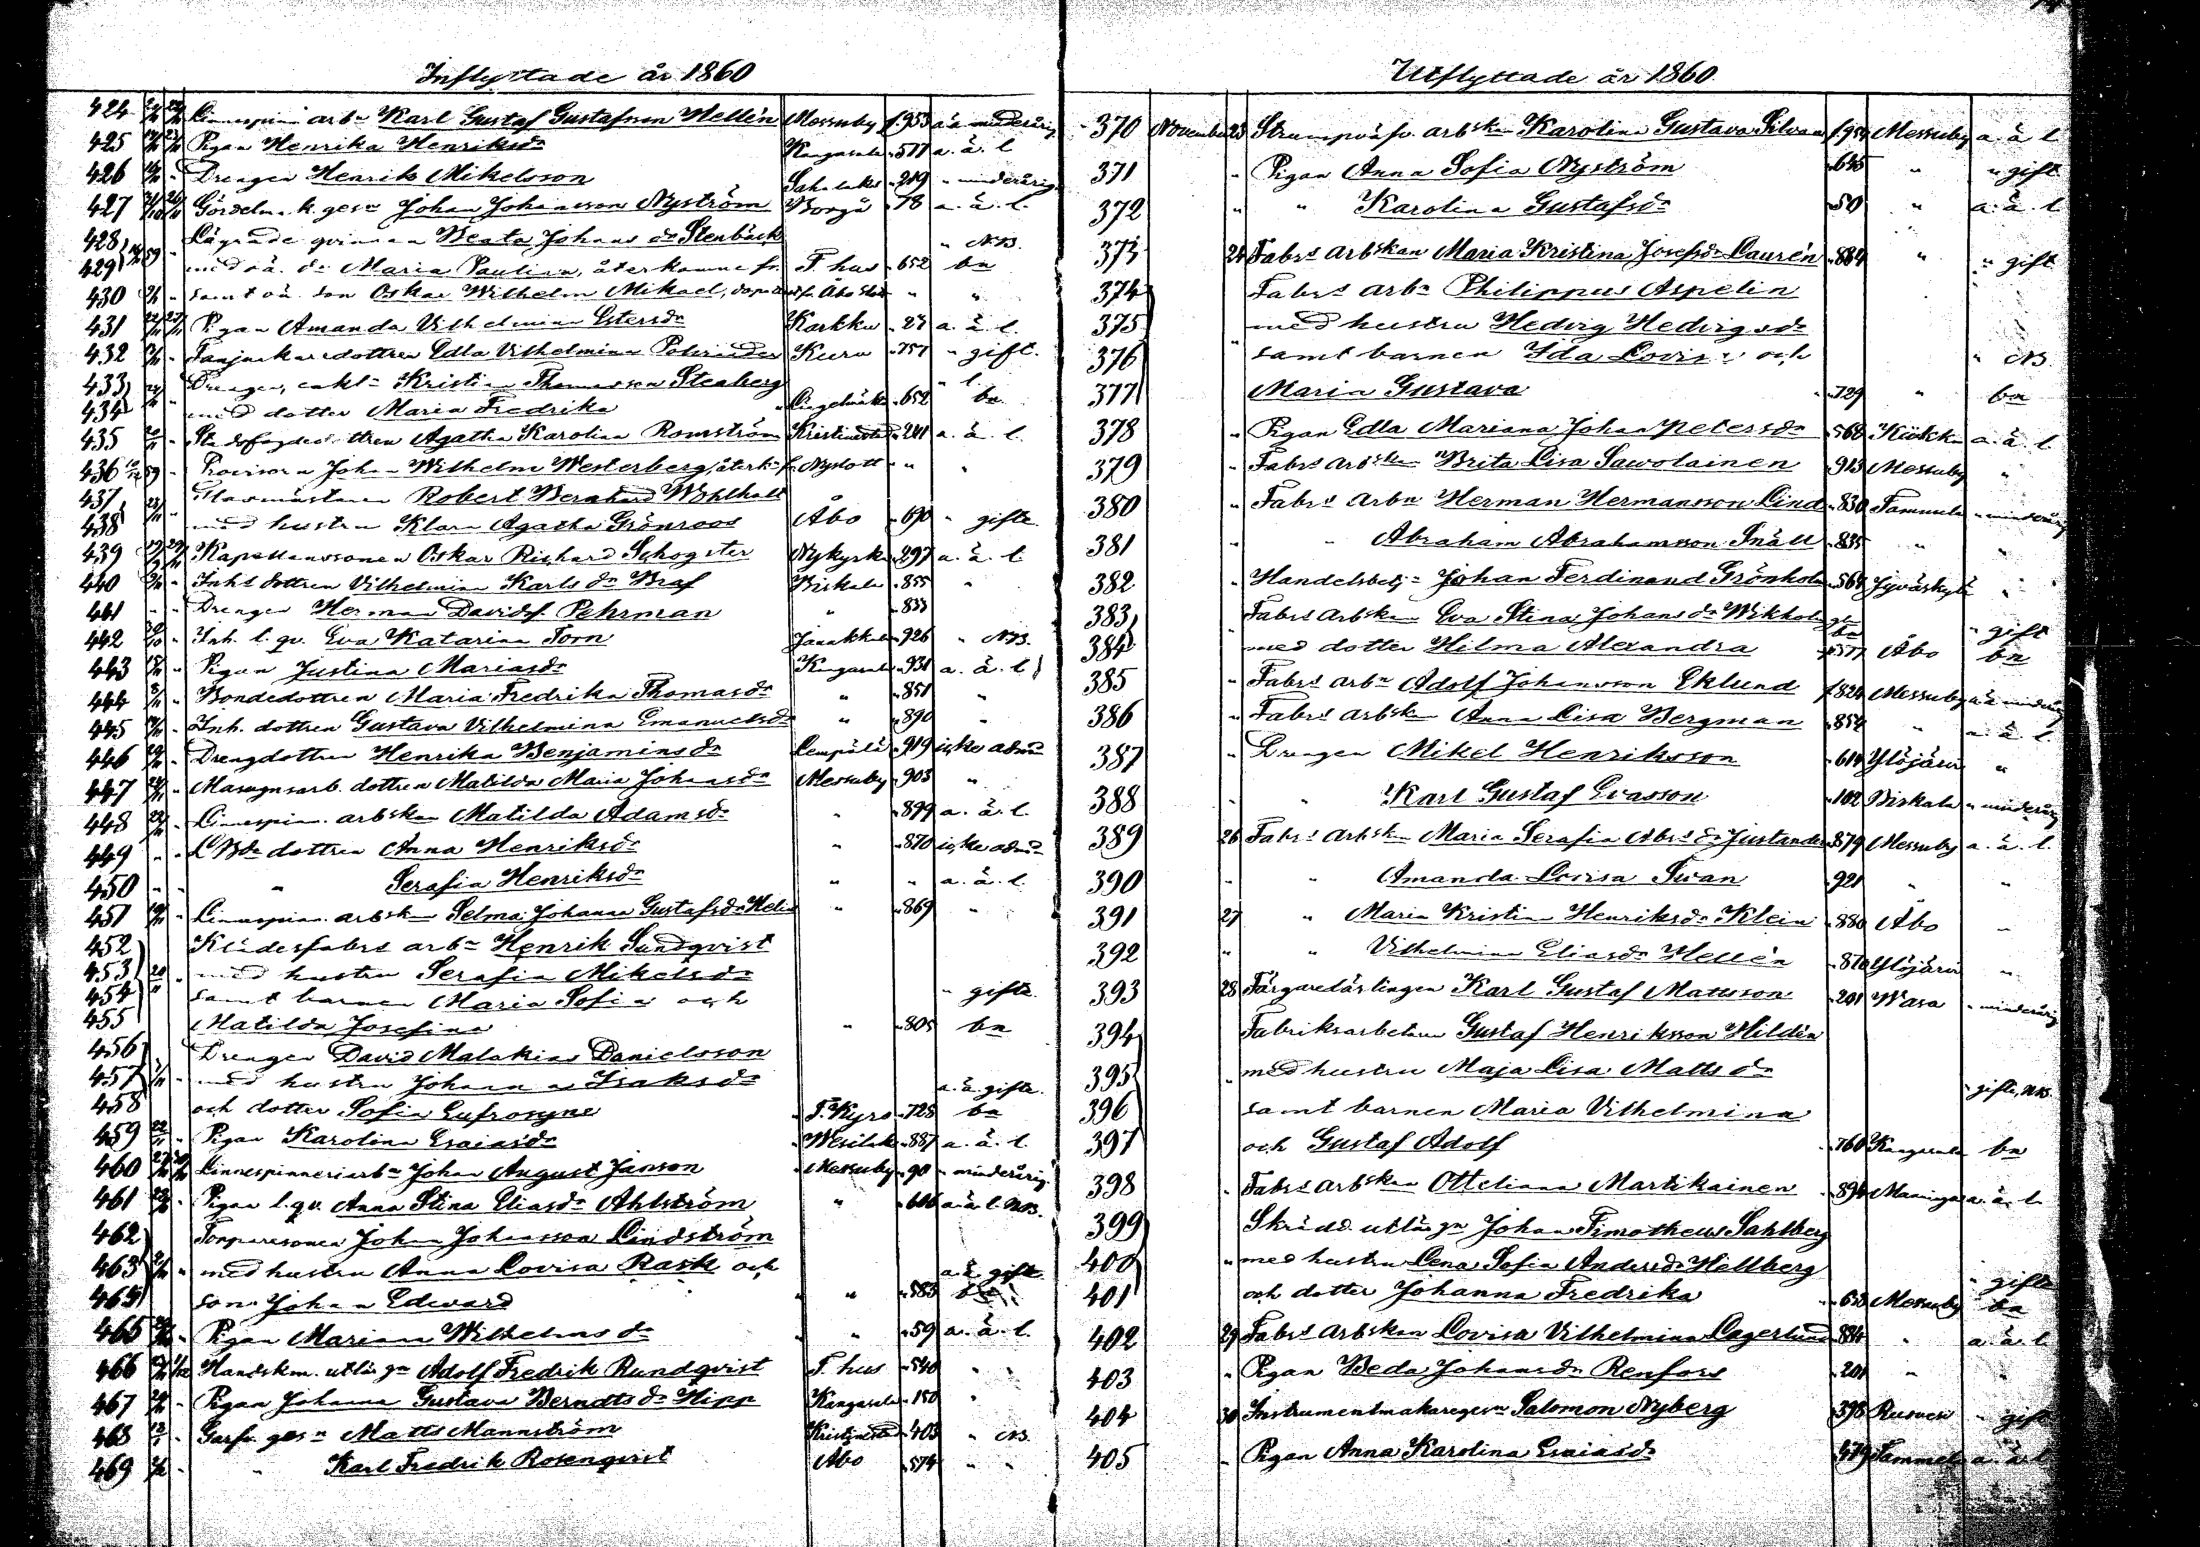 Inflyttade år 1860
424 Linnespinn arbn Karl Gustaf Gustafsson Hellén Messuby f. 953 a.ä minderårig
425 Pigan Henrika Henriksdr Kangasala " 511 a. ä. l
426 Drengen Henrik Mikelsson Sahalaks " 219 " minderårig
427 Gördelm. k. gesn Johan Johansson Nyström Borgå " 78 a. ä. l.
428 Lägrade qvinnan Beata Johans dr Stenbäck " NB.
429 59 med oä. dr Maria Paulina, återkomne fr. T. hus " 652 bn
430 samt oä. son Oskar Wilhelm Mikael, Åbo " "
431 Pigan Amanda Vilhelmina Estersdr Karkku " 27 a. ä. l.
432 Fanjunkaredottren Edla Vilhelmina Kuru " 757 " gift.
433 Drengen, enkl Kristian Thomasson Stenberg " l.
434 med dotter Maria Fredrika Lingelmäki " 652 bn
435 Stadsfogdedottren Agatha Karolina Romström Kristinestad " 241 a. ä. l.
436 59 Provisorn Johan Wilhelm Westerberg, återk. fr. Nyslott " " "
437 Robert Bernhard Wohlhalt
438 med hustru Klara Agatha Grönroos Åbo " 690 " gifte
439 Kapellanssonen Oskar Richard Schogster Nykyrka " 297 a. ä. l.
440 Inhs dottren Vilhelmina Karls dr Braf Birkala " 855 "
441 " " Drengen Herman Davidsf Pehrman " " 833
442 Inh. l. qv. Eva Katarina Torn Janakkala " 926 " NB.
443 Pigan Justina Mariasdr Kangasala " 931 a. ä. l.
444 Bondedottren Maria Fredrika Thomasdr " " 851 "
445 Inh. dottren Gustava Vilhelmina Emanuelsdr " " 890 "
446 Drengdottren Henrika Benjaminsdr Lempälä " 919 icke adm
447 Masugnsarb. dottren Matilda Maria Johansdr Messuby " 903 "
448 Linnespinn. arbskan Matilda Adamsdr " " 899 a. ä. l.
449 " " dottren Anna Henriksdr " " 870 icke adm
450 " " " Serafia Henriksdr " " " a. ä. l.
451 Linnespinn. arbskan Selma Johanna Gustafsdr " " 869 "
452 Klädesfabrs arbn Henrik Sundqvist
453 med hustru Serafia Mikelsdr
454 samt barnen Maria Sofia och " gifte.
455 Matilda Josefina " " 805 bn
456 Drengen David Malakias Danielsson
457 med hustru Johanna Isaksdr a. ä. gifte.
458 och dotter Sofia Eufrosyne T. Kyro " 725 bn
459 Pigan Karolina Esaiasdr Wesilaks " 887 a. ä. l.
460 Linnespinneriarbn Johan August Janson Messuby " 90 " minderårig
461 Pigan l. qv. Anna Stina Eliasdr Ahlström " " 666 a. ä. l. NB.
462 Torparesonen Johan Johansson Lindström
463 med hustru Anna Lovisa Rask och a. ä. gifte
464 son Johan Edward " " 583 bn
465 Pigan Mariana Wilhelms dr " " 59 a. ä. l.
466 Handskm. utlärgn Adolf Fredrik Rundqvist T. hus " 540 " "
467 Pigan Johanna Gustava Berndts dr Hipp Kangasala " 150 "
468 Garfv. gesn Matts Mannström Kristinestad " 403 " NB.
469 " Karl Fredrik Rosenqvist Åbo " 574 " "
Utflyttade år 1860.
370 November 23 Strumpväfv. arbskan Karolina Gustava Silvan f. 954 Messuby a. ä. l
371 " Pigan Anna Sofia Nyström " 645 " " gift
372 " " Karolina Gustafsdr " 50 " a. ä. l
373 24 Fabrs Arbskan Maria Kristina Josefsdr Laurén " 884 " " gift
374 Fabrs Arbn Philippus Aspelin
375 med hustru Hedvig Hedvigsdr
376 samt barnen Ida Lovisa och " NB.
377 Maria Gustava " 729 " bn
378 " Pigan Edla Mariana Johan Petersdr " 568 a. ä. l.
379 " Fabrs Arbskan Brita Lisa Sawolainen " 913 Messuby "
380 " Fabrs Arbn Herman Hermansson Lind " 830 Tammela " minderårig
381 " " Abraham Abrahamsson Snäll " 835 " "
382 " Handelsbetj Johan Ferdinand Grönholm " 564 Jyväskylä "
383 Fabrs Arbskan Eva Stina Johans dr Wikholm " gift
384 " med dotter Hilma Alexandra 577 Åbo bn
385 " Fabrs Arbn Adolf Johansson Eklund f 824 Messuby a. ä minderårig
386 " Fabrs Arbskan Anna Lisa Bergman " 854 " a. ä. l.
387 " Drengen Mikel Henriksson " 614 Ylöjärvi "
388 " " Karl Gustaf Evasson " 102 Birkala " minderårig
389 26 Fabrs Arbskan Maria Serafia Abrs dr Justander " 879 Messuby a. ä. l.
390 " " Amanda Lovisa Swan " 921 " "
391 27 " Maria Kristina Henriksdr Klein " 880 Åbo "
392 " " Vilhelmina Eliasdr Hellén " 870 Ylöjärvi "
393 28 Färgarelärlingen Karl Gustaf Mattsson " 201 Wasa " minderårig
394 Fabriksarbetaren Gustaf Henriksson Hildén
395 " med hustru Maja Lisa Matts dr " gifte, NB.
396 samt barnen Maria Vilhelmina
397 och Gustaf Adolf " 760 Kangasala bn
398 " Fabrs Arbskan Otteliana Martikainen " 894 Maaninga a. ä. l.
399 Skrädd. utlärgn Johan Timotheus Sahlberg
400 " med hustru Lena Sofia Andersdr Hellberg " gifte
401 och dotter Johanna Fredrika " 638 Messuby bn
402 29 Fabrs Arbskan Lovisa Vilhelmina Lagerlund " 884 " a. ä. l
403 " Pigan Beda Johansdr Renfors " 201 " "
404 30 Instrumentmakaregesn Salomon Nyberg " 398 Rusvesi " gift
405 " Pigan Anna Karolina Esaiasdr " 479 Tammela a. ä. l